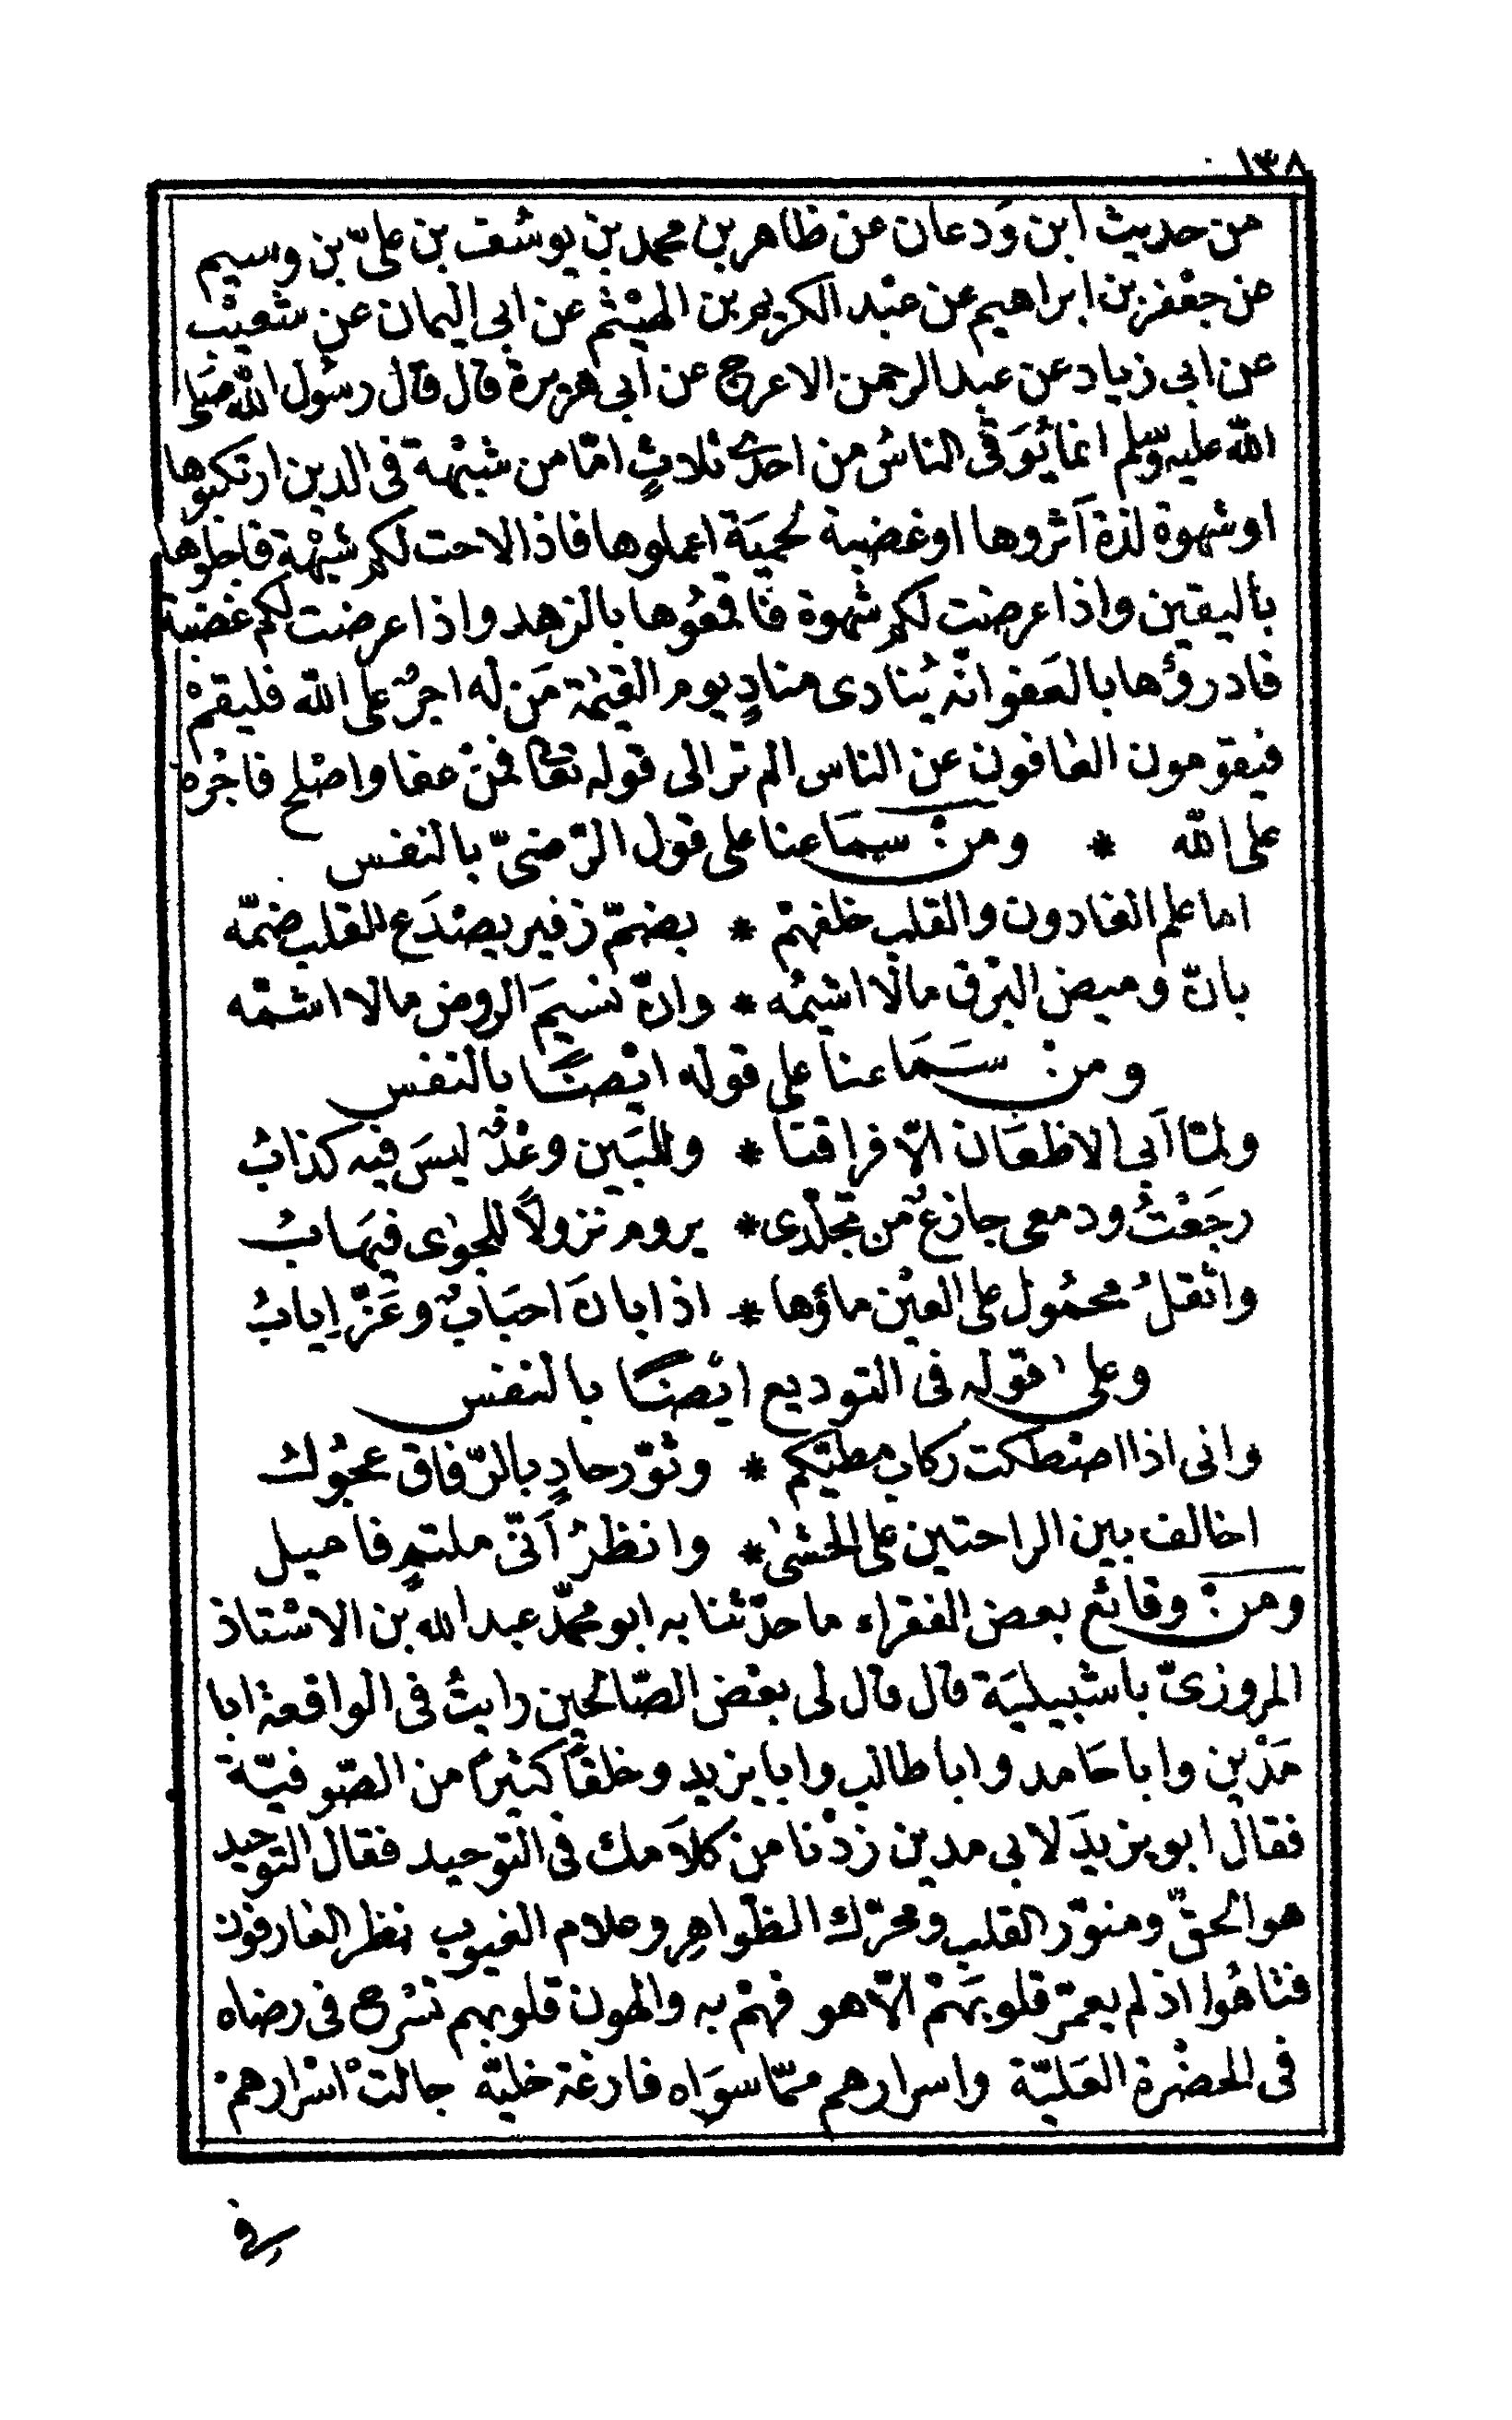 ١٣٨
من حديث ابن وَدعان عن ظاهر بن محمد بن يوسف بن علىّ بن وسيم
عن جعْفر بن ابراهيم عن عبْد الكريم بن الهيْثم عن ابى اليمان عن شعيْب
عن ابى زياد عن عبد الرحمن الاعرج عن ابى هريرة قال قال رسُول الله صلى
الله عليه وسلم انما يُؤتَى الناسُ من احدى ثلاثٍ امّا من شبْهة فى الدين ارتكبوها
او شهوة لذة آثروها او غضبة لحميَة اعملوها فاذا لاحت لكم شبْهة فاجلوها
باليقين واذا عرضت لكم شهوة فاقمعُوها بالزهد واذا عرضت لكم غضبة
فادرؤها بالعَفو انّه يُنادى منادٍ يوم القيٰمة مَن له اجرٌ على الله فليقمْ
فيقومون العافون عن الناس الم تر الى قوله تعالى فمنْ عفا واصْلح فاجْره
على الله * ومن سمَاعنا على قول الرّضىّ بالنفس
اما علم الغادون والقلب خلفهمْ * بضمّ زفير يصْدَع القلب ضمّه
بانّ وميض البَرْق مالا اشيمُه * وانّ نسيمَ الروض مالا اشمّه
ومن سَمَاعنا على قوله ايْضًا بالنفس
ولمّا اَبى الاظعَان الّا فراقنَا * وللبَين وعْدٌ ليسَ فيه كذابُ
رجَعْتُ ودمعى جازعٌ من تجلّدى * يروم نزولاً للجوٰى فيهَابُ
واثقلُ محمُول على العيْن ماؤها * اذا بانَ احبَابٌ وعَزّ اِيابُ
وعلى قوله فى التوديع ايْضًا بالنفس
وانى اذا اصْطكت ركاب مطيّكم * وثوّر حادٍ بالرّفاق عجُول
اخالف بين الراحتين على الحشىٰ * وانظرُ اَنّى ملتمٍ فاميل
ومن وقائع بعض الفقراء ما حدّثنا به ابو محمّد عبد الله بن الاسْتاذ
المروزىّ باشبيليَة قال قال لى بعْض الصّالحين رايتُ فى الواقعة ابا
مَدْين وابا حَامد وابا طالب وابا يزيد وخلقًا كثيرًا من الصّوفيّة
فقال ابو يزيدَ لابى مدين زدْنا من كلاَمك فى التوحيد فقال التوحيد
هو الحقّ ومنوّر القلب ومحرّك الظّواهِر وعلام الغيوب نظر العارفون
فتاهُوا اذ لم يعمّر قلوبَهمْ الّا هو فهمْ به والهون قلوبهم تسْرح فى رضاه
فى الحضْرة العَليّة واسرارهم ممّا سوَاه فارغة خليّة جالتْ اسْرارهم
فى